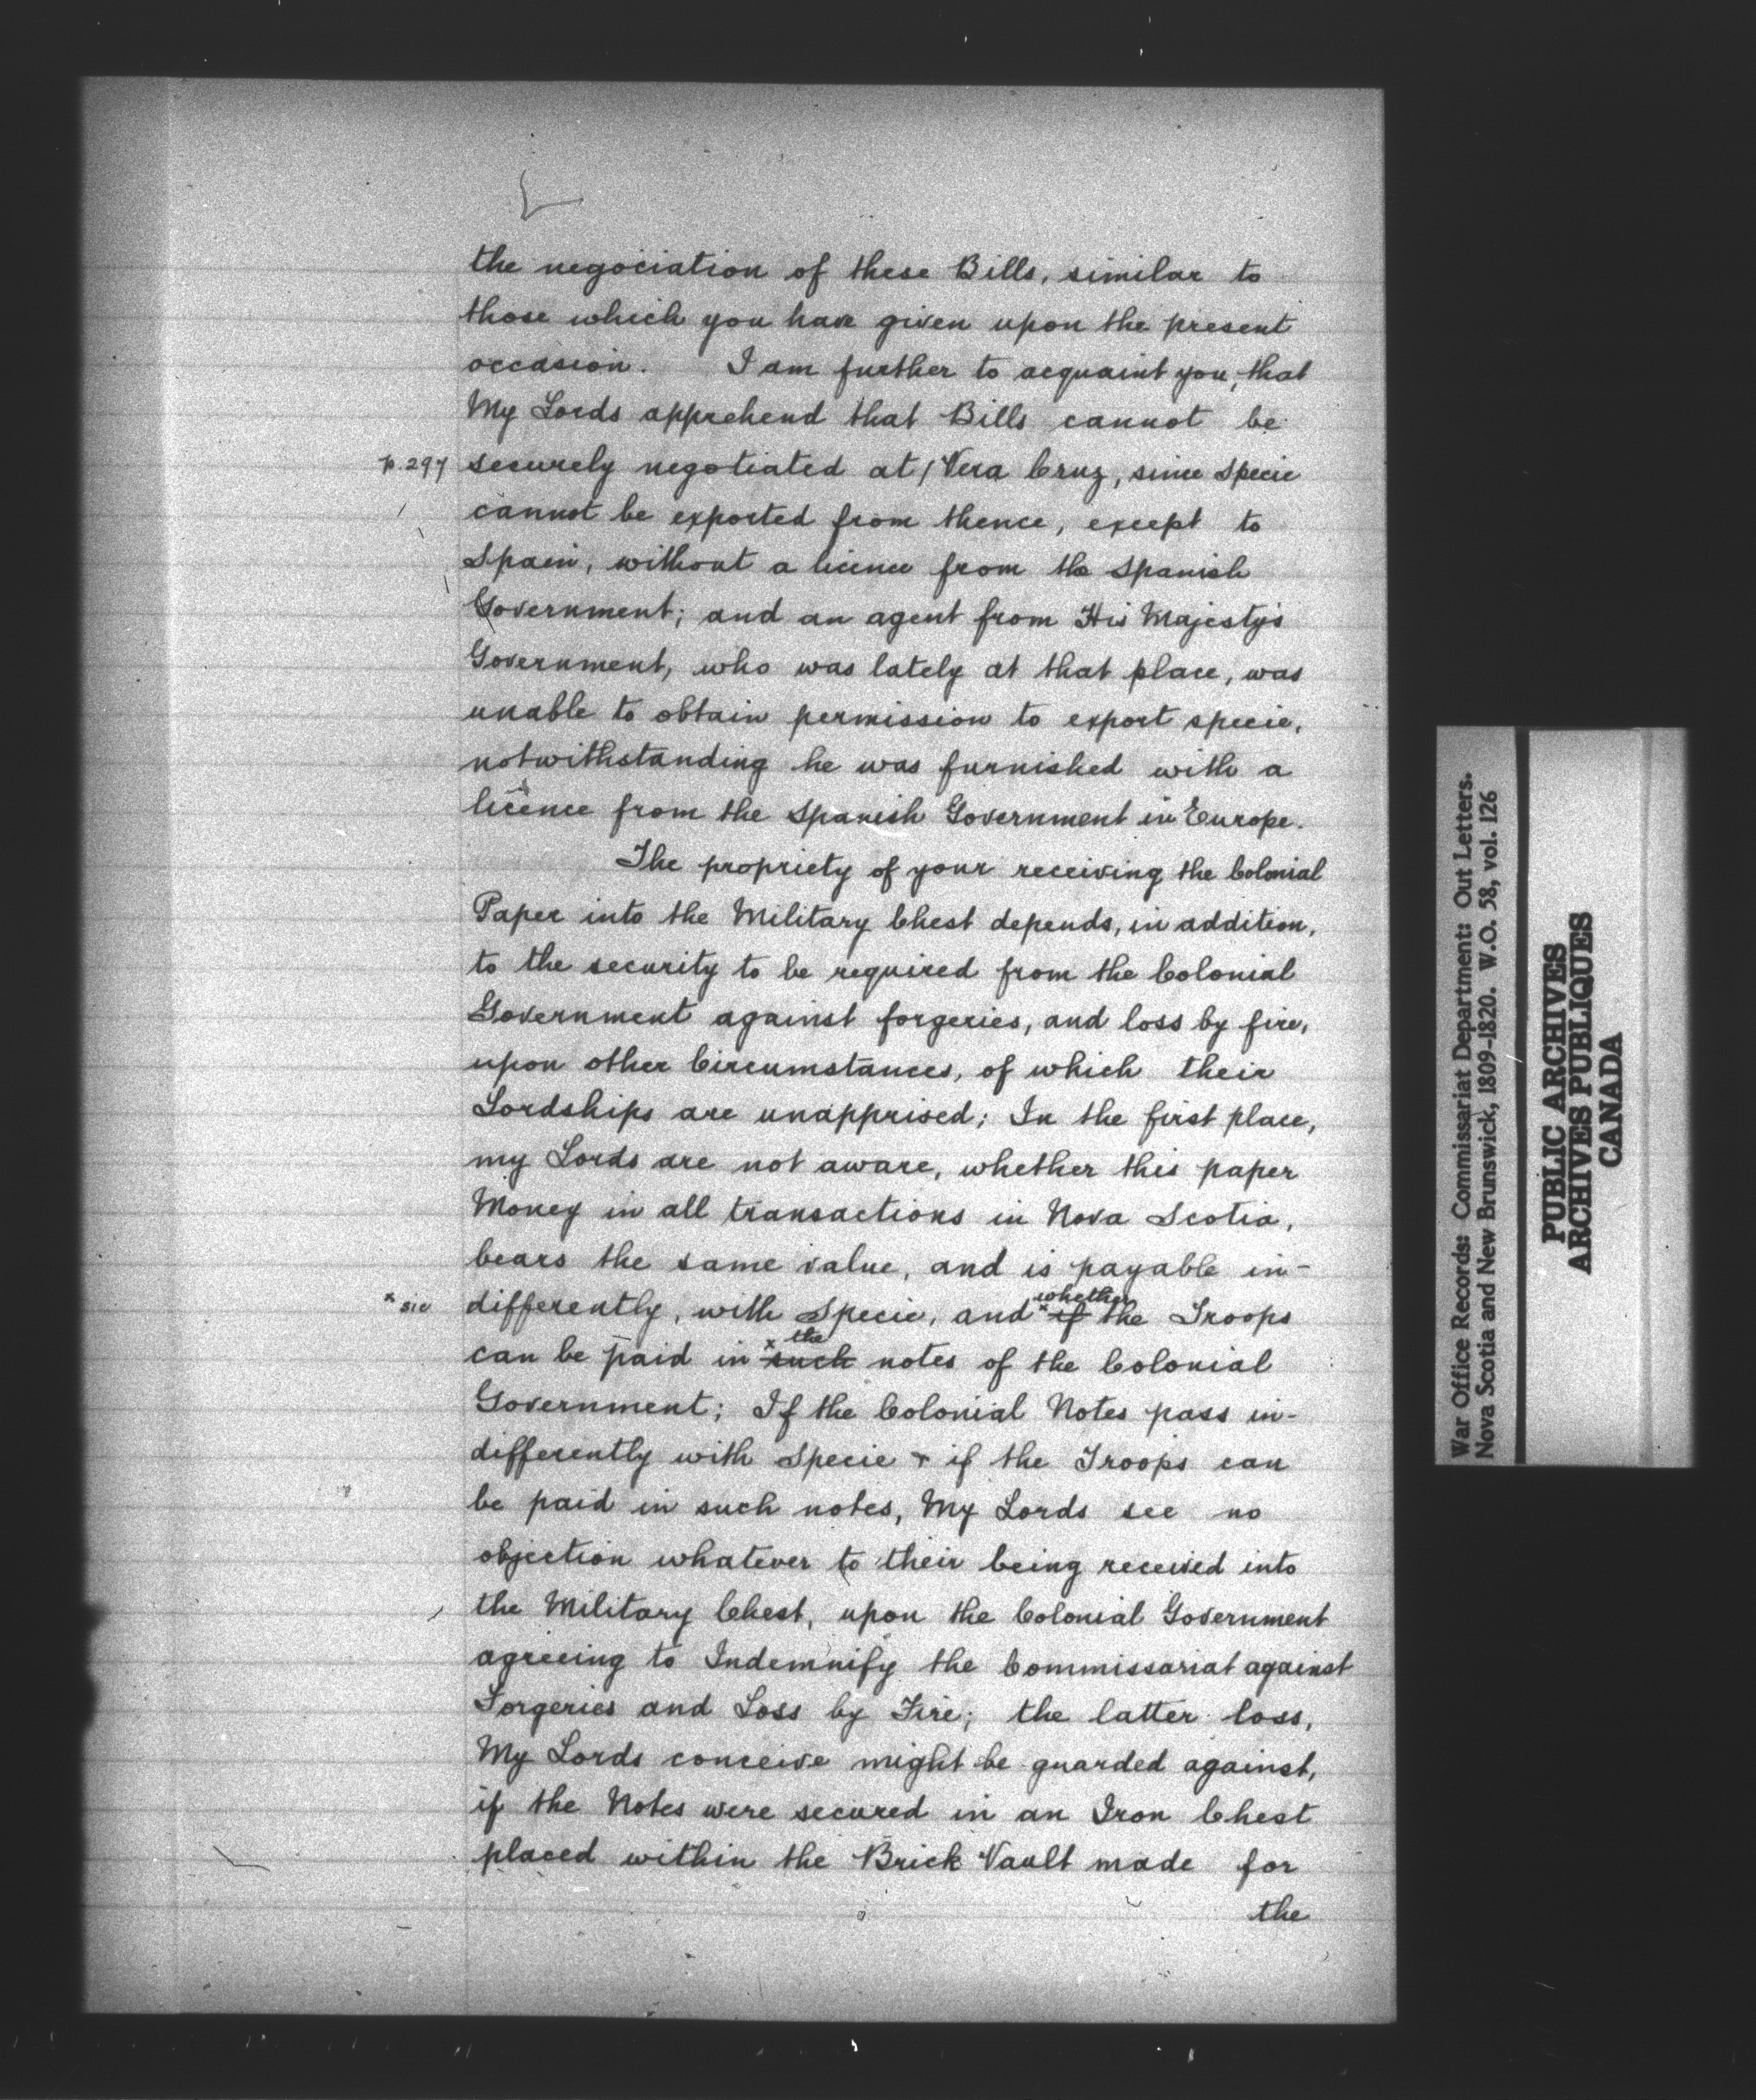 the negociation of these Bills, similar to
those which you have given upon the present
occasion. I am further to acquaint you, that
My Lords apprehend that Bills cannot be
p. 297 securely negotiated at / Vera Cruz, since Specie
cannot be exported from thence, except to
Spain, without a licence from the Spanish
Government; and an agent from His Majesty's
Government, who was lately at that place, was
unable to obtain permission to export specie,
notwithstanding he was furnished with a
licence from the Spanish Government in Europe.
The propriety of your receiving the Colonial
Paper into the Military Chest depends, in addition,
to the security to be required from the Colonial
Government against forgeries, and loss by fire,
upon other Circumstances, of which their
Lordships are unapprised; In the first place,
my Lords are not aware, whether this paper
Money in all transactions in Nova Scotia,
bears the same value, and is payable in-
whether
x sic differently, with Specie, and x if the Troops
the
can be paid in x such notes of the Colonial
Government; If the Colonial Notes pass in-
differently with Specie & if the Troops can
be paid in such notes, My Lords see no
objection whatever to their being received into
the Military Chest, upon the Colonial Government
agreeing to Indemnify the Commissariat against
Forgeries and Loss by Fire; the latter loss,
My Lords conceive might be guarded against,
if the Notes were secured in an Iron Chest
placed within the Brick Vault made for
the
War Office Records: Commissariat Department: Out Letters.
Nova Scotia and New Brunswick, 1809-1820. W.O. 58, vol. 126
PUBLIC ARCHIVES
ARCHIVES PUBLIQUES
CANADA